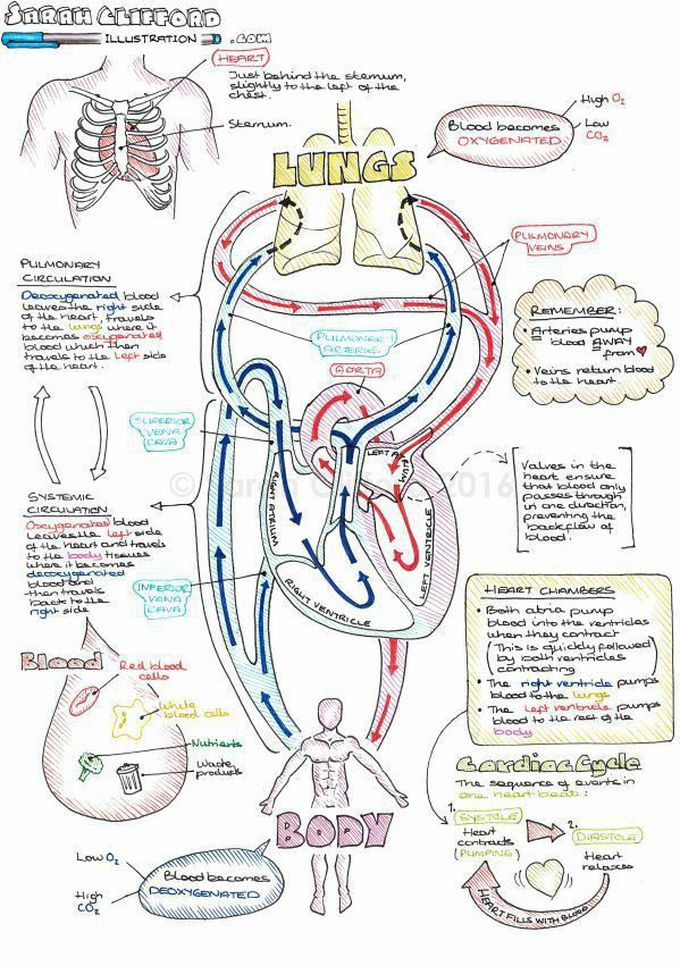 SARAH CLIFFORD
ILLUSTRATION .COM
HEART
Just behind the sternum,
slightly to the left of the
chest.
Sternum.
LUNGS
Blood becomes
OXYGENATED
High O2
Low
CO2
PULMONARY
VEINS
PULMONARY
CIRCULATION
Deoxygenated blood
leaves the right side
of the heart, travels
to the lungs where it
becomes oxygenated
blood which then
travels to the left side
of the heart.
PULMONARY
ARTERIES
AORTA
REMEMBER:
• Arteries pump
blood AWAY
from
• Veins return blood
to the heart.
SUPERIOR
VENA
CAVA
LEFT ATRIUM
RIGHT ATRIUM
LEFT VENTRICLE
RIGHT VENTRICLE
© Sarah Clifford 2016
Valves in the
heart ensure
that blood only
passes through
in one direction,
preventing the
backflow of
blood.
SYSTEMIC
CIRCULATION
Oxygenated blood
leaves the left side
of the heart and travels
to the body tissues
where it becomes
deoxygenated
blood and
then travels
back to the
right side
INFERIOR
VENA
CAVA
HEART CHAMBERS
• Both atria pump
blood into the ventricles
when they contract
(This is quickly followed
by both ventricles
contracting)
• The right ventricle pumps
blood to the lungs
• The left ventricle pumps
blood to the rest of the
body
Blood
Red blood
cells
White
blood cells
Nutrients
Waste
products
BODY
Low O2
High
CO2
Blood becomes
DEOXYGENATED
Cardiac Cycle
The sequence of events in
one heart beat:
1.
SYSTOLE
Heart
contracts
(PUMPING)
2.
DIASTOLE
Heart
relaxes
HEART FILLS WITH BLOOD